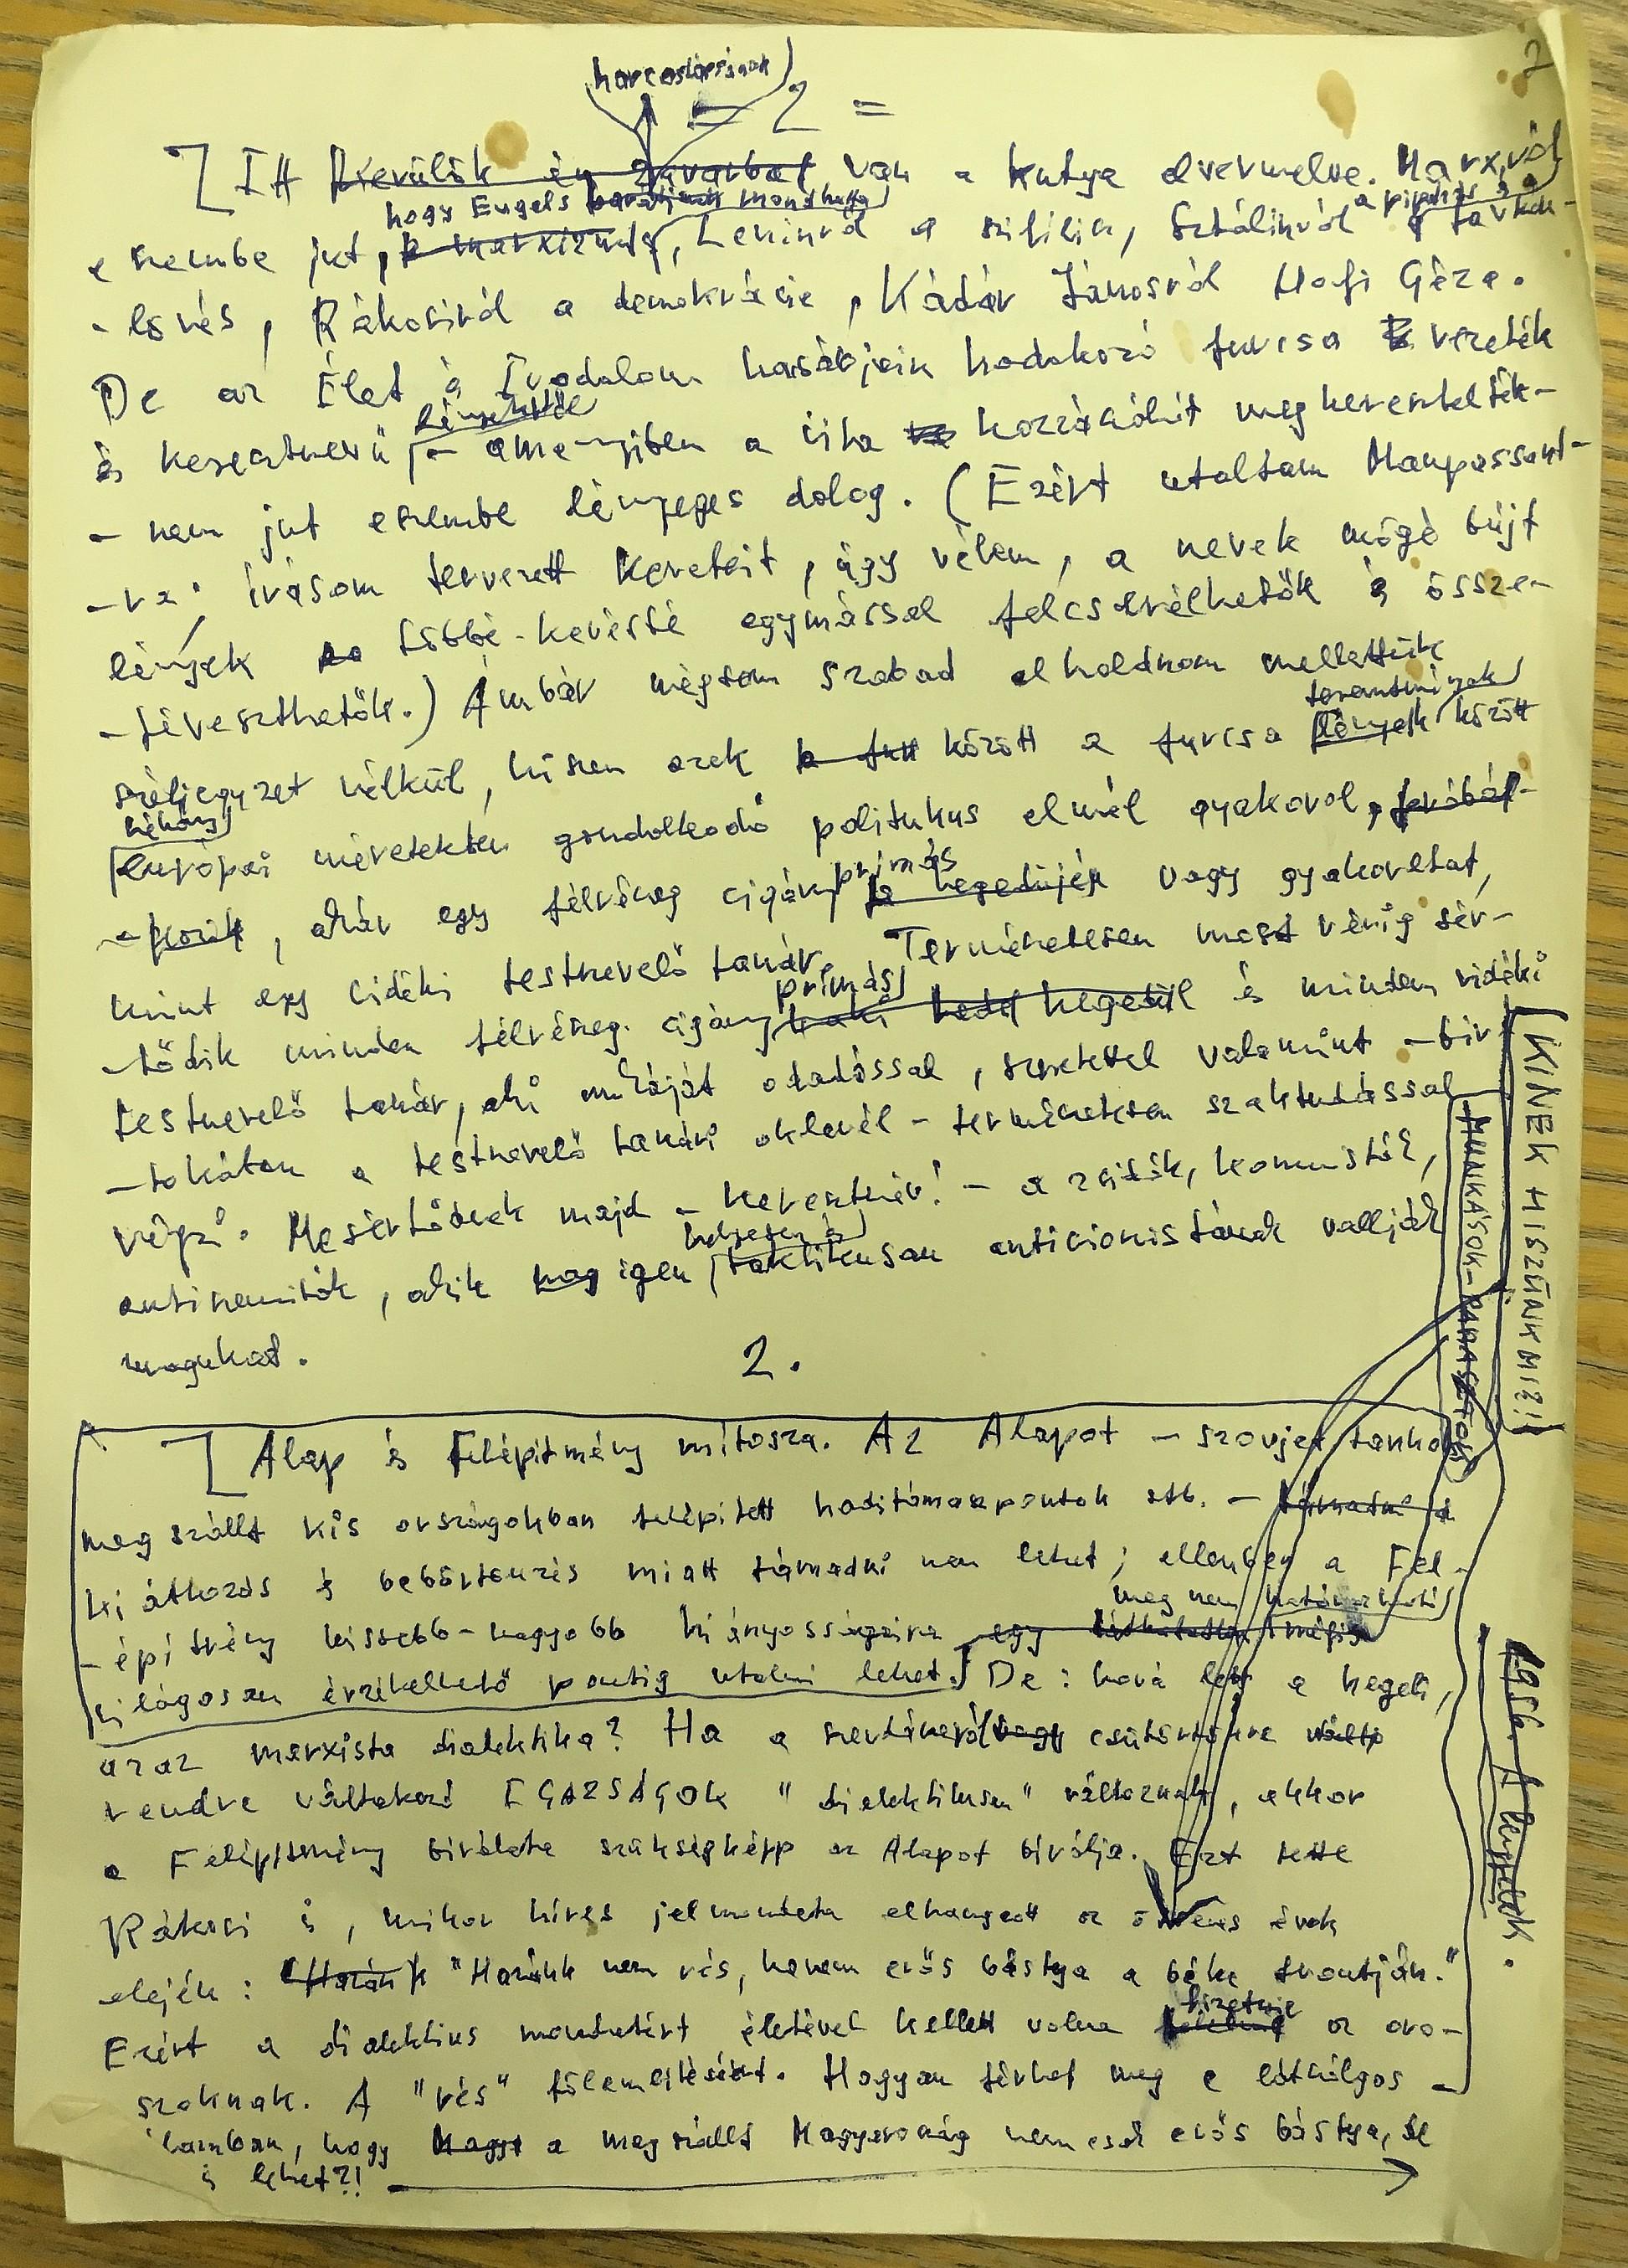 2
harcostársának
= 2 =
Itt kerülök én zavarba van a kutya elvermelve. Marxról
hogy Engels barátjának mondhatta
a pipázás s a
eszembe jut, a marxizmus, Leninről a szifilisz, Sztálinról a farkas-
-lövés, Rákosiról a demokrácia, Kádár Jánosról Hofi Géza.
De az Élet és Irodalom hasábjain hadakozó furcsa vezeték
és keresztnevű
- amennyiben a cikk hozzászólóit megkeresztelték-
- nem jut eszembe lényeges dolog. (Ezért utaltam Maupassant-
-ra; írásom tervezett kereteit, úgy vélem, a nevek mögé bújt
lények többé-kevésbé egymással felcserélhetők és össze-
-téveszthetők.) Ámbár mégsem szabad elhaladnom mellettük
teremtmények
széljegyzet nélkül, hiszen ezek között a furcsa lények között
néhány
európai méretekben gondolkodó politikus elmél gyakorol, próbál-
, akár egy félrészeg cigányprímás a hegedűjén vagy gyakoroltat,
mint egy vidéki testnevelő tanár. Természetesen most vérig sér-
prímás
-tődik minden félrészeg cigány aki hegedül és minden vidéki
testnevelő tanár, aki munkáját odadással, szeretettel valamint - bir-
-tokában a testnevelő tanári oklevél - természetesen szaktudással
végzi. Megsértődnek majd - keresztnév! - a zsidók, komunisták,
helyesen és
antiszemiták, akik igen taktikusan anticionistának vallják
magukat.
2.
Alap és Felépítmény mítosza. Az Alapot - szovjet tankok
meg szállt kis országokban telepített haditámaszpontok stb. - támadni a
kiátkozás és bebörtönzés miatt támadni nem lehet; ellenben a Fel-
meg nem határozható
-építmény kissebb-nagyobb hiányosságaira egy láthatatlan mégis
világosan érzékelhető pontig utalni lehet. De: hová lett a hegeli,
azaz marxista dialektika? Ha a szerdánkról vagy csütörtökre
rendre változkozó IGAZSÁGOK "dialektikusan" változnak, akkor
a Felépítmény bírálata szükségképp az Alapot bírálja. Ezt tette
Rákosi is, mikor híres jelmondata elhangzott az ötvenes évek
elején: "Hazánk nem rés, hanem erős bástya a béke frontján."
fizetnie
Ezért a dialektikus mondatért életével kellett volna az oro-
szoknak. A "rés" fölemlítéséért. Hogyan férhet meg e
-lamban, hogy a megszállt Magyarország nem csak erős bástya, de
is lehet?!
KINEK HISZÜNK MI?!
MUNKÁSOK-PARASZTOK
1956. A lengyelek.